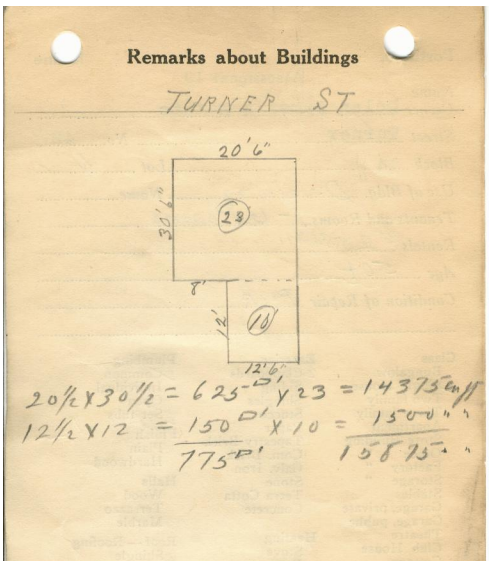 Remarks about Buildings
TURNER ST
20'6"
30'6"
23
8'
12'
10
12'6"
20 1/2 X 30 1/2 = 625 □' X 23 = 14375 cu ft
12 1/2 X 12 = 150 □' X 10 = 1500 " "
775 □' 15875 " "